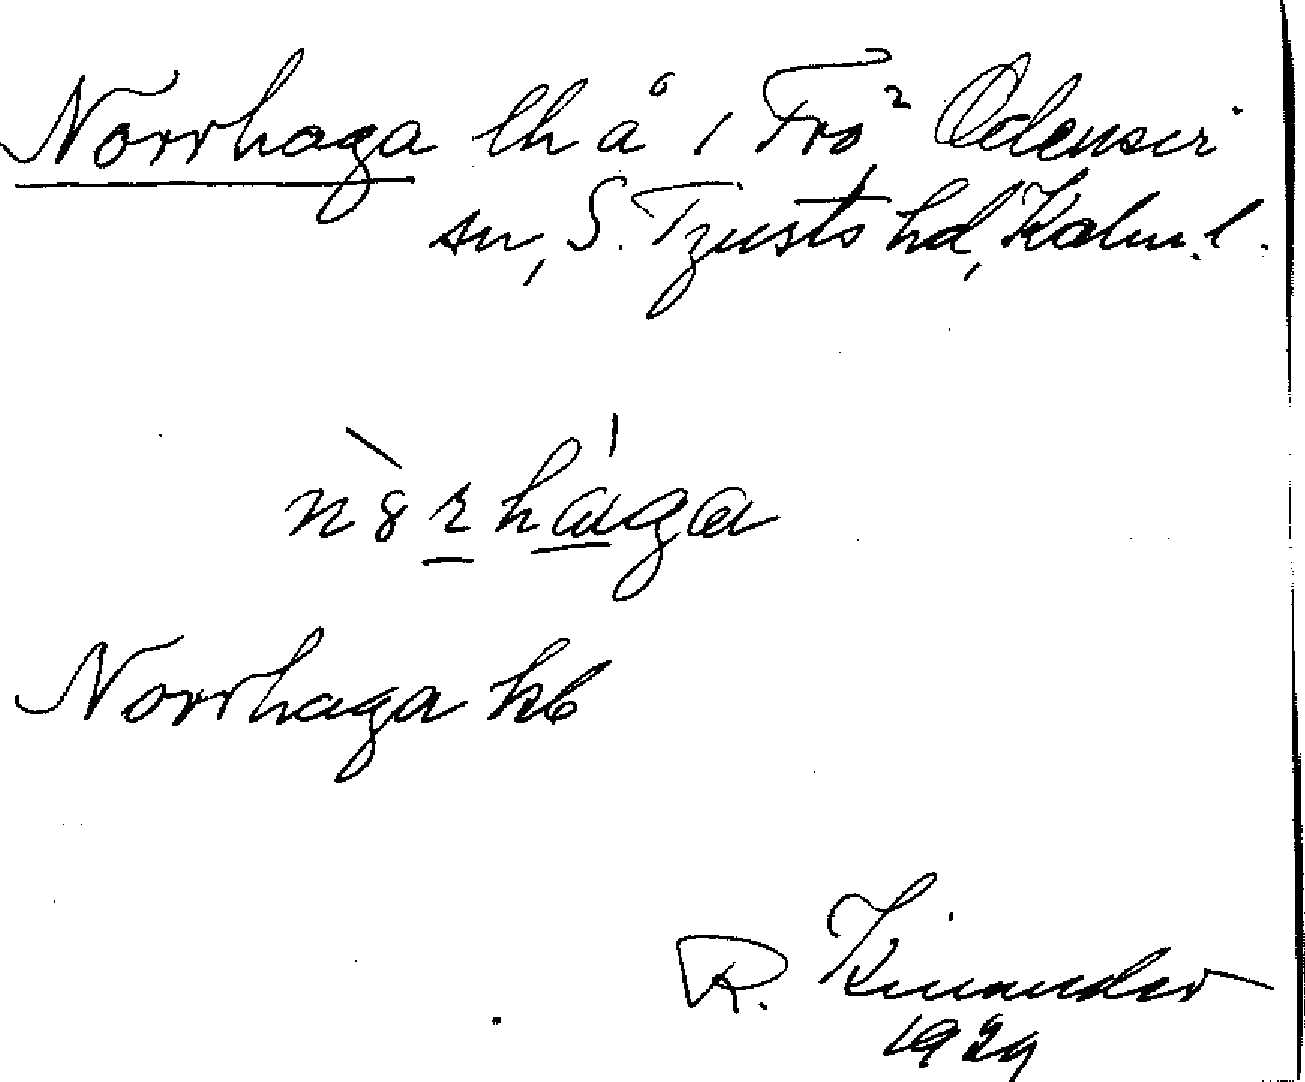 Norrhaga lh å 1 Frö 2, Odensvi
sn, S. Tjusts hd, Kalm. l.
nòrhága
Norrhaga kb
R. Kinander
1929